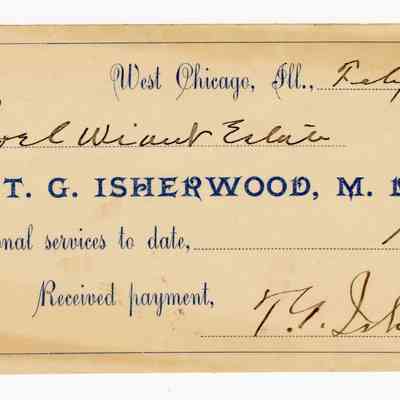 West Chicago, Ill., Feby
oel Wiant Estate
T. G. ISHERWOOD, M. D
onal services to date,
Received payment,
T. G. Ish